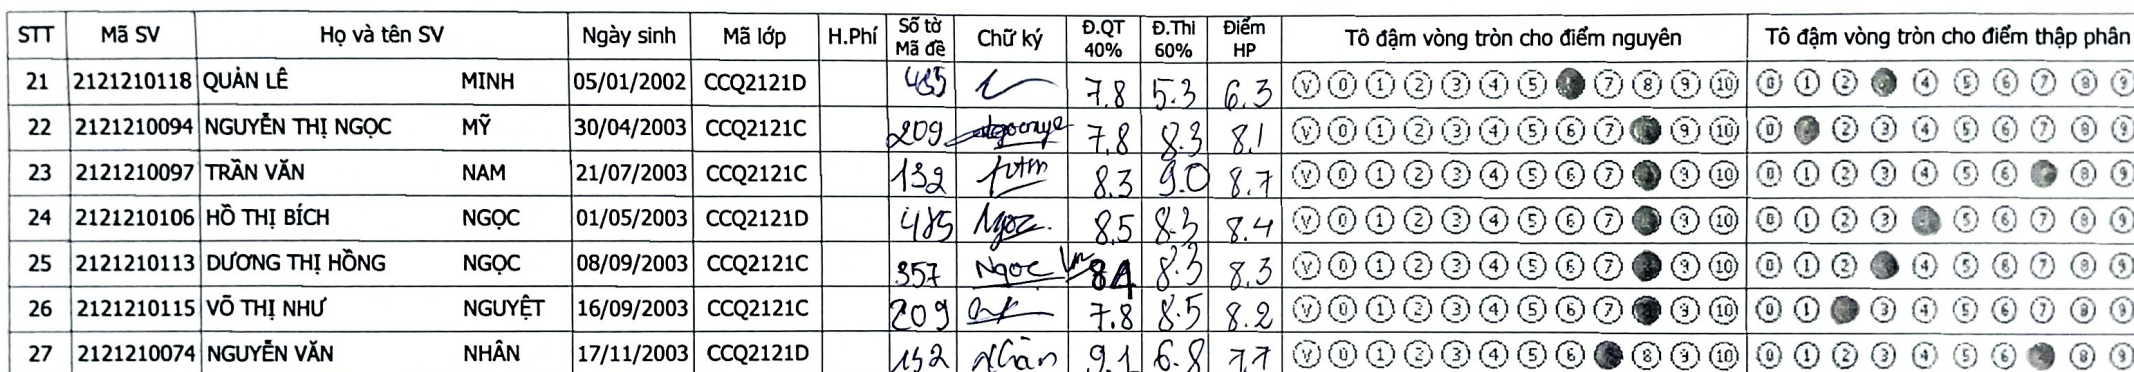 STT Mã SV Họ và tên SV Ngày sinh Mã lớp H.Phí Số tờ Mã đề Chữ ký Đ.QT 40% Đ.Thi 60% Điểm HP Tô đậm vòng tròn cho điểm nguyên Tô đậm vòng tròn cho điểm thập phân
21 2121210118 QUẢN LÊ MINH 05/01/2002 CCQ2121D 485 7.8 5.3 6.3 V 0 1 2 3 4 5 7 8 9 10 0 1 2 4 5 6 7 8 9
22 2121210094 NGUYỄN THỊ NGỌC MỸ 30/04/2003 CCQ2121C 209 7.8 8.3 8.1 V 0 1 2 3 4 5 6 7 9 10 0 2 3 4 5 6 7 8 9
23 2121210097 TRẦN VĂN NAM 21/07/2003 CCQ2121C 132 8.3 9.0 8.7 V 0 1 2 3 4 5 6 7 9 10 0 1 2 3 4 5 6 8 9
24 2121210106 HỒ THỊ BÍCH NGỌC 01/05/2003 CCQ2121D 485 Ngọc 8.5 8.3 8.4 V 0 1 2 3 4 5 6 7 9 10 0 1 2 3 5 6 7 8 9
25 2121210113 DƯƠNG THỊ HỒNG NGỌC 08/09/2003 CCQ2121C 357 Ngọc 8.4 8.3 8.3 V 0 1 2 3 4 5 6 7 9 10 0 1 2 4 5 6 7 8 9
26 2121210115 VÕ THỊ NHƯ NGUYỆT 16/09/2003 CCQ2121C 209 7.8 8.5 8.2 V 0 1 2 3 4 5 6 7 9 10 0 1 3 4 5 6 7 8 9
27 2121210074 NGUYỄN VĂN NHÂN 17/11/2003 CCQ2121D 132 Nhân 9.1 6.8 7.7 V 0 1 2 3 4 5 6 8 9 10 0 1 2 3 4 5 6 8 9